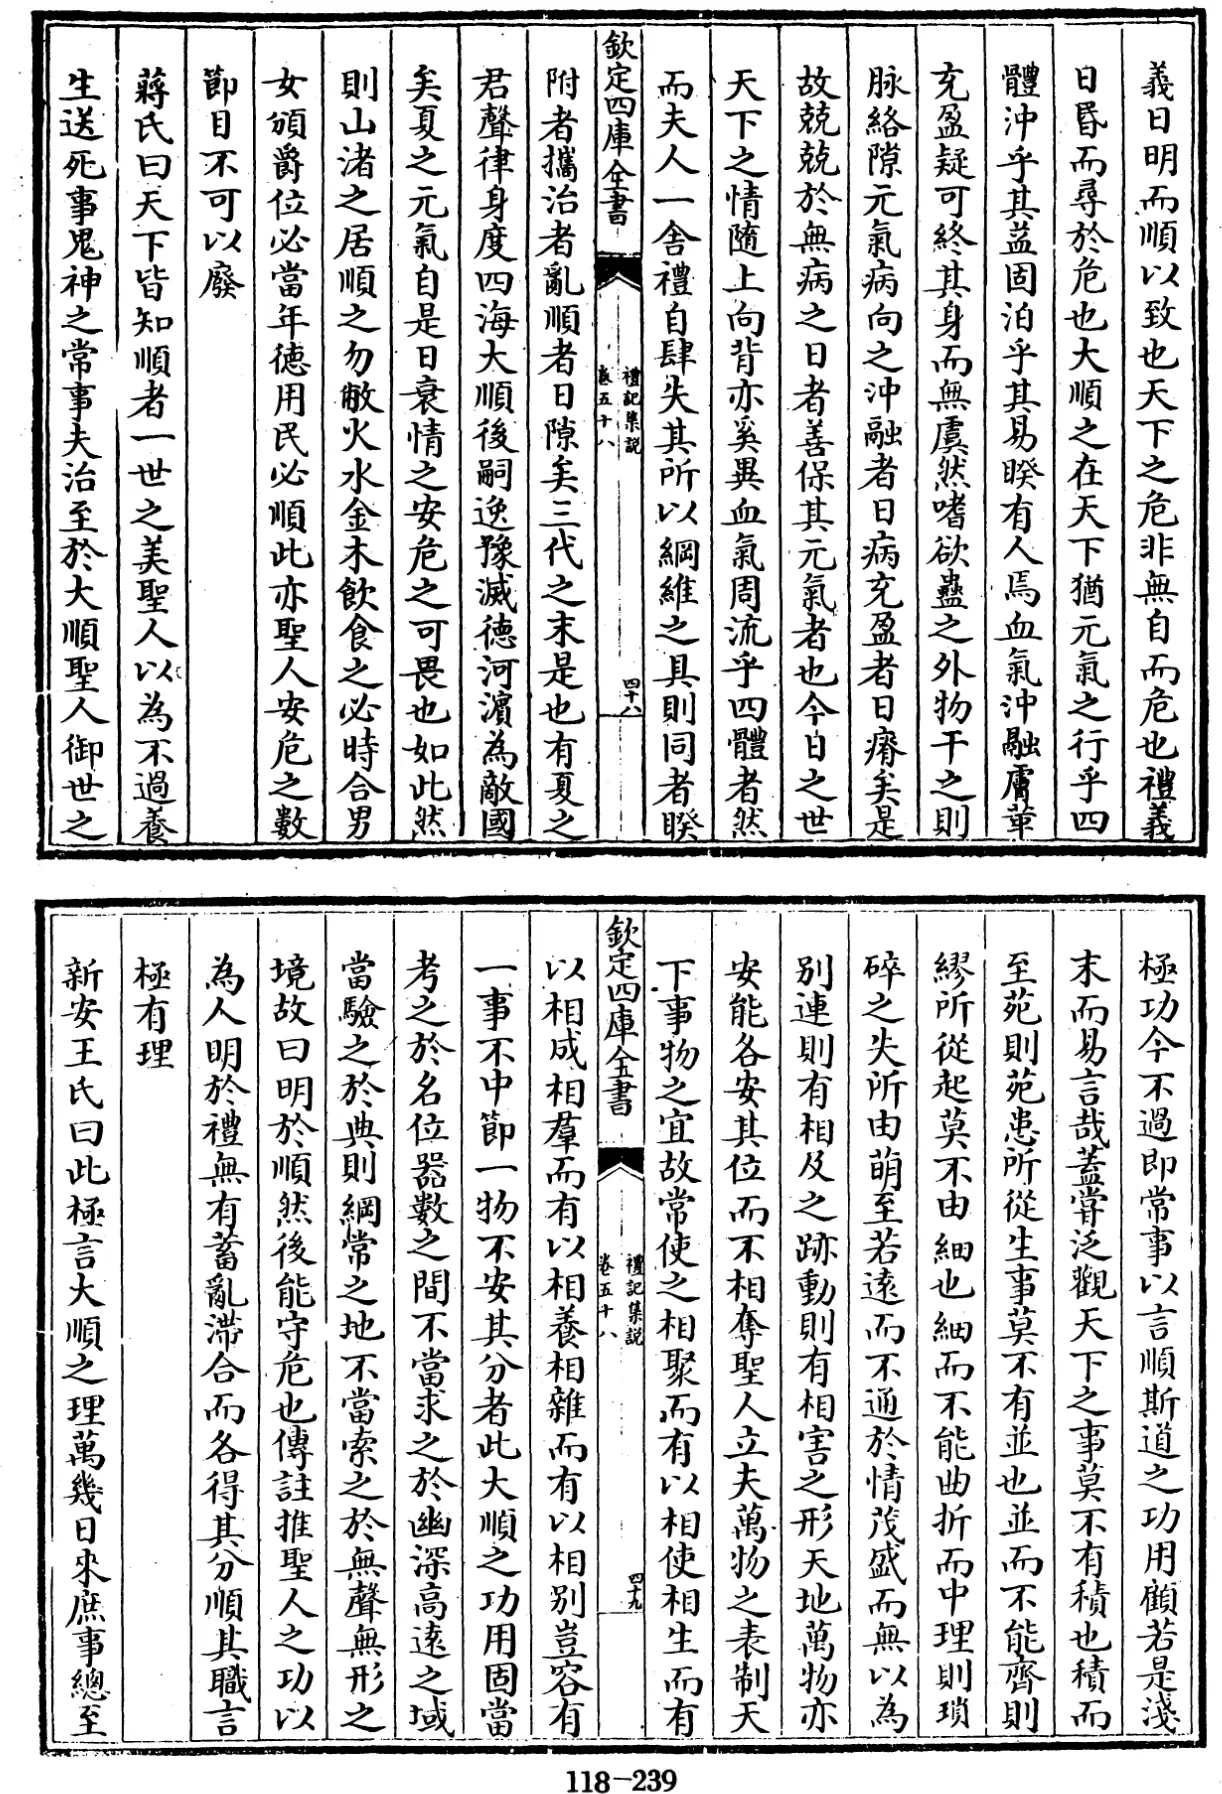 義日明而順以致也天下之危非無自而危也禮義
日昬而尋於危也大順之在天下猶元氣之行乎四
體沖乎其益固泊乎其易暌有人焉血氣沖融膚革
充盈疑可終其身而無虞然嗜欲蠱之外物干之則
脉絡隙元氣病向之沖融者日病充盈者日瘠矣是
故兢兢於無病之日者善保其元氣者也今日之世
天下之情隨上向背亦奚異血氣周流乎四體者然
而夫人一舍禮自肆失其所以綱維之具則同者暌
欽定四庫全書
禮記集說
卷五十八
四十八
附者攜治者亂順者日隙矣三代之末是也有夏之
君聲律身度四海大順後嗣逸豫滅德河濵為敵國
矣夏之元氣自是日衰情之安危之可畏也如此然
則山渚之居順之勿敝火水金木飲食之必時合男
女頒爵位必當年德用民必順此亦聖人安危之數
節目不可以廢
蔣氏曰天下皆知順者一世之美聖人以為不過養
生送死事鬼神之常事夫治至於大順聖人御世之
極功今不過即常事以言順斯道之功用顧若是淺
末而易言哉蓋嘗泛觀天下之事莫不有積也積而
至苑則苑患所從生事莫不有並也並而不能齊則
繆所從起莫不由細也細而不能曲折而中理則瑣
碎之失所由萌至若遠而不通於情茂盛而無以為
別連則有相及之跡動則有相害之形天地萬物亦
安能各安其位而不相奪聖人立夫萬物之表制天
下事物之宜故常使之相聚而有以相使相生而有
欽定四庫全書
禮記集說
卷五十八
四十九
以相成相羣而有以相養相雜而有以相別豈容有
一事不中節一物不安其分者此大順之功用固當
考之於名位器數之間不當求之於幽深高遠之域
當驗之於典則綱常之地不當索之於無聲無形之
境故曰明於順然後能守危也傳註推聖人之功以
為人明於禮無有蓄亂滯合而各得其分順其職言
極有理
新安王氏曰此極言大順之理萬幾日來庶事總至
118-239